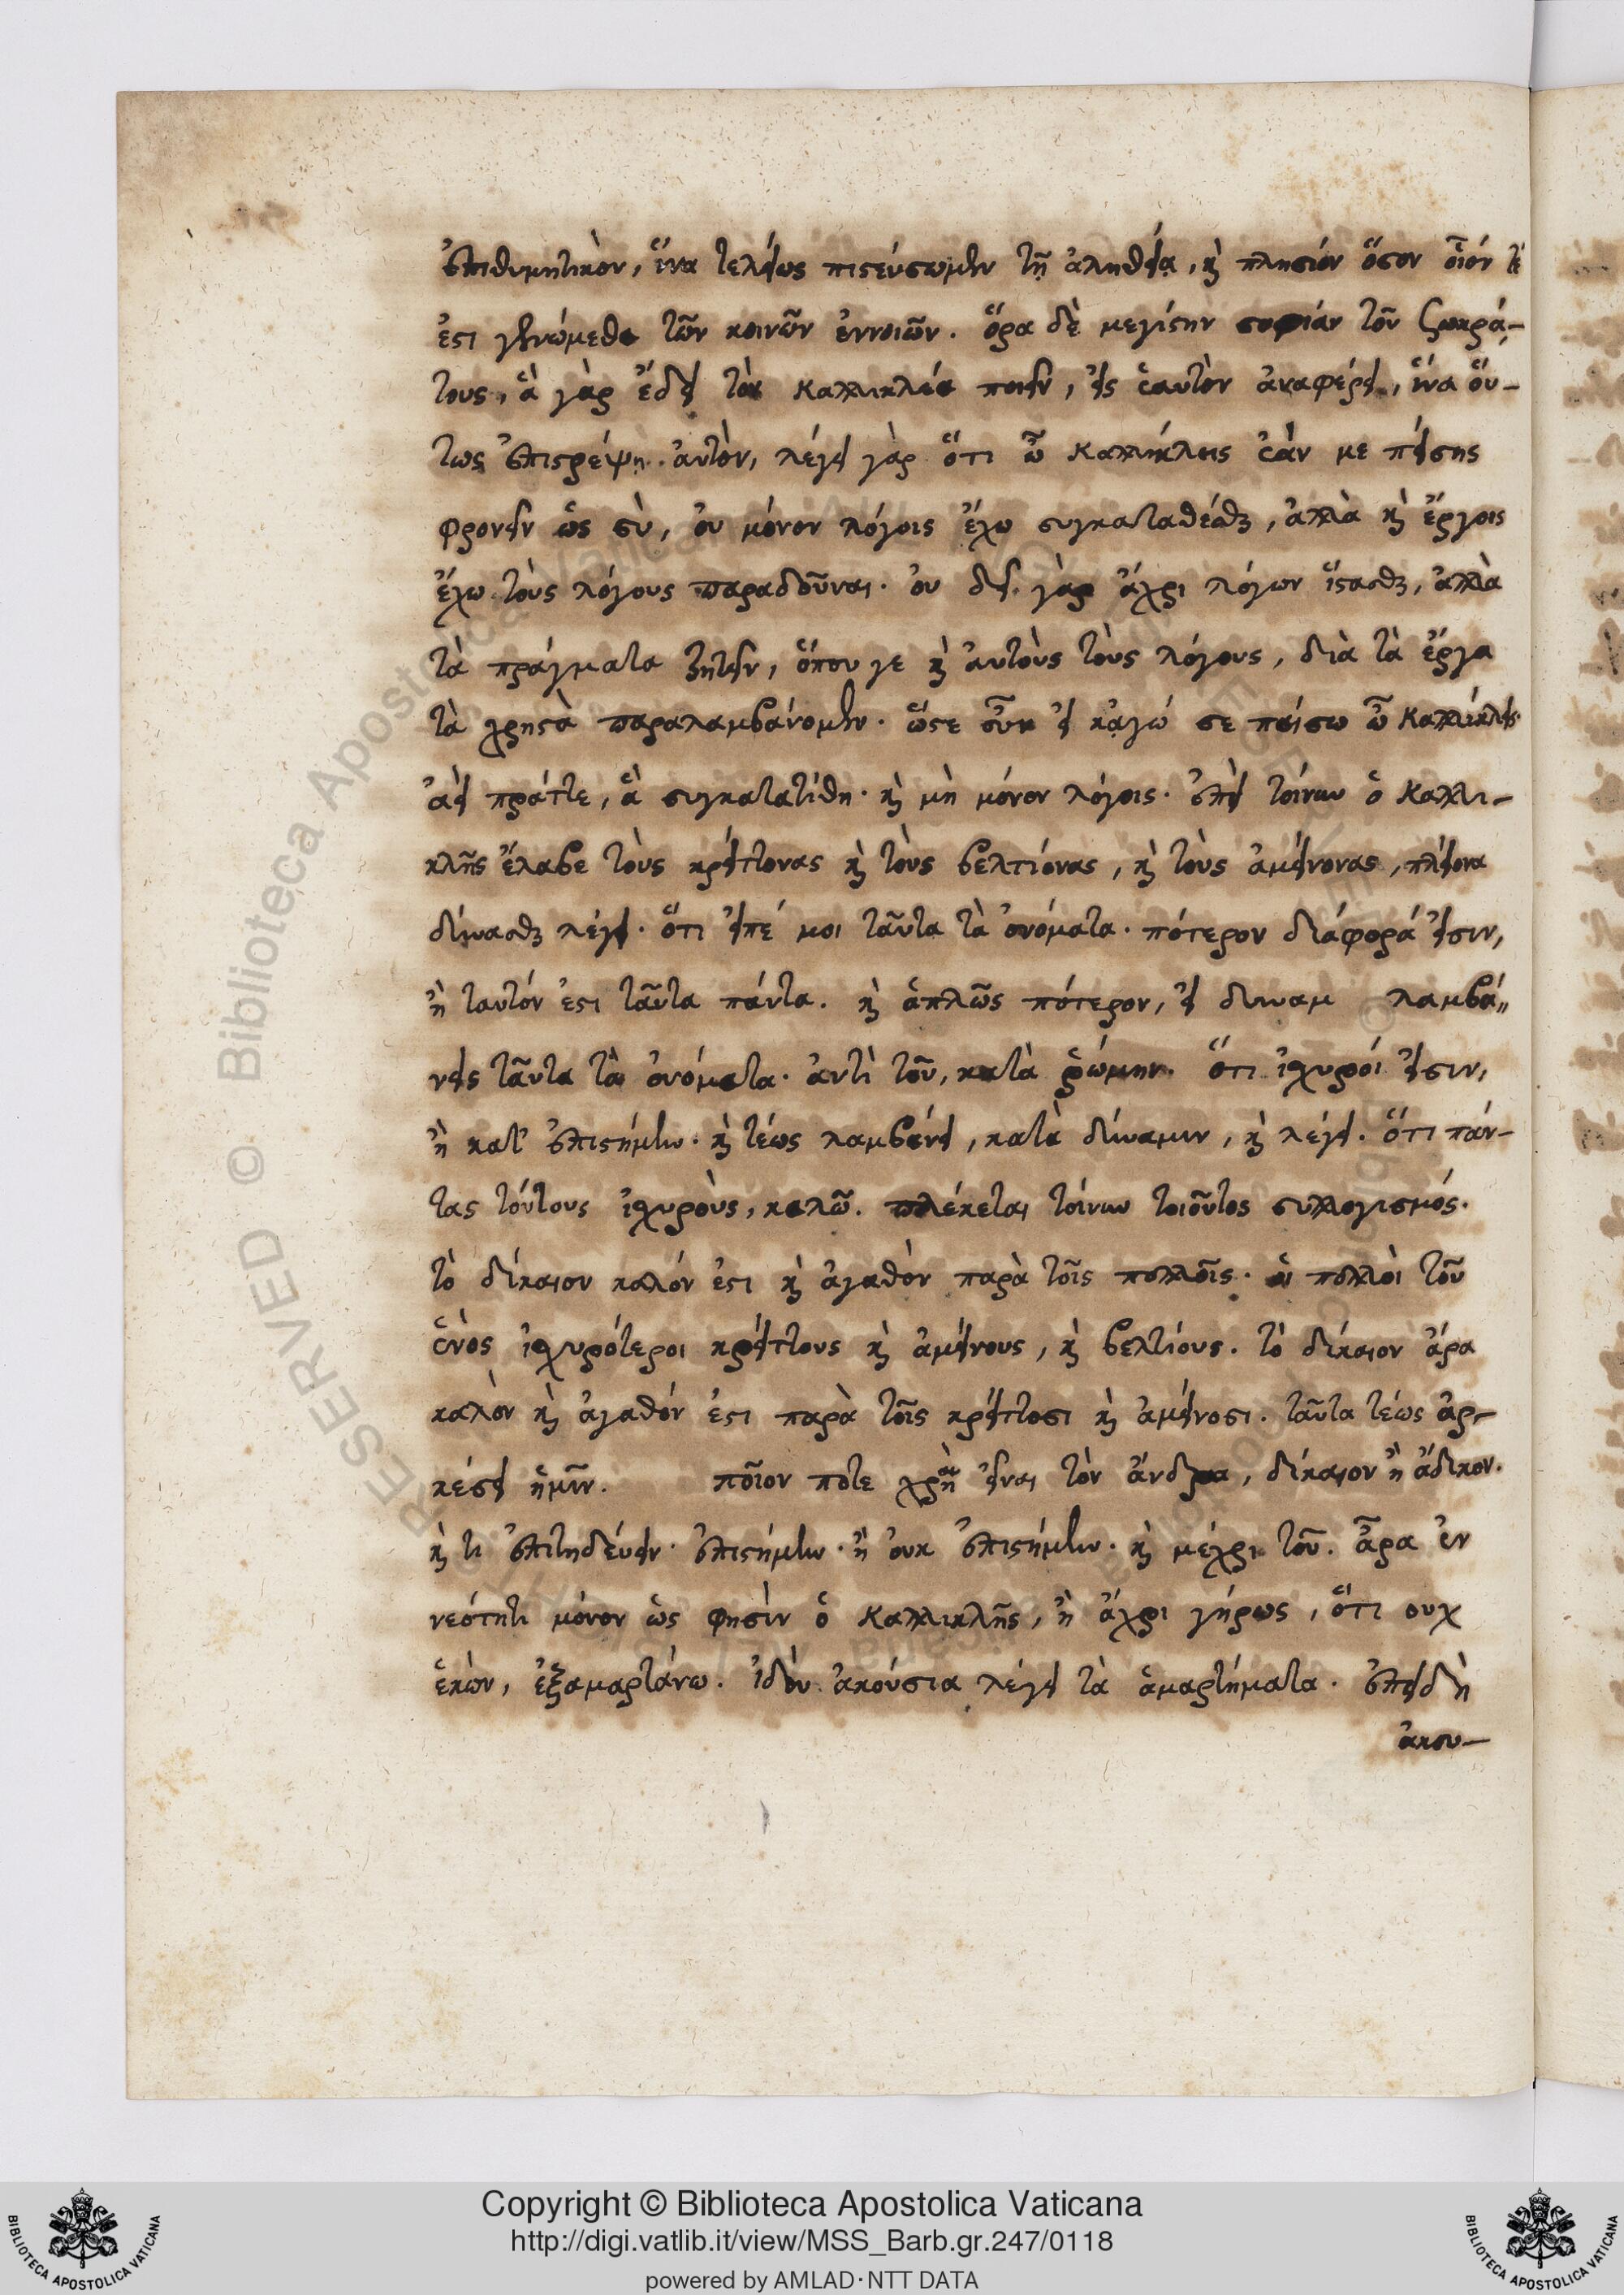 ἐπιθυμητικὸν, ἵνα τελείως πιστεύσωμεν τῇ ἀληθείᾳ, καὶ πλησιόν ὅσον οἷόν τέ
ἐστι γενώμεθα τῶν κοινῶν ἐννοιῶν. ὅρα δὲ μεγίστην σοφίαν τοῦ Σωκρά-
τους, ἃ γὰρ ἔδει τὸν Καλλικλέα ποιεῖν, εἰς ἑαυτὸν ἀναφέρει, ἵνα οὕ-
τως ἐπιστρέψῃ αὐτὸν, λέγει γὰρ ὅτι ὦ Καλλίκλεις ἐὰν με πείσης
φρονεῖν ὡς σὺ, οὐ μόνον λόγοις ἔχω συγκαταθέσθαι, ἀλλὰ καὶ ἔργοις
ἔχω τοὺς λόγους παραδοῦναι. οὐ δεῖ γὰρ ἄχρι λόγων ἵστασθαι, ἀλλὰ
τὰ πράγματα ζητεῖν, ὅπου γε καὶ αὐτοὺς τοὺς λόγους, διὰ τὰ ἔργα
τὰ χρηστὰ παραλαμβάνομεν. ὥστε οὖν εἰ κᾀγώ σε πείσω ὦ Καλλίκλεις
ἀεὶ πράττε, ἃ συγκατατίθη. καὶ μὴ μόνον λόγοις. ἐπεὶ τοίνυν ὁ Καλλι-
κλῆς ἔλαβε τοὺς κρείττονας καὶ τοὺς βελτίονας, καὶ τοὺς ἀμείνονας, πλείονα
δύνασθαι λέγει. ὅτι εἰπέ μοι ταῦτα τὰ ὀνόματα. πότερον διάφορά εἰσιν,
ἢ ταυτόν ἐστι ταῦτα πάντα. καὶ ἁπλῶς πότερον, εἰ δυναμ λαμβά-
νεις ταῦτα τὰ ὀνόματα. ἀντὶ τοῦ, κατὰ ῥώμην. ὅτι ἰσχυροί εἰσιν,
ἢ κατ' ἐπιστήμην. καὶ τέως λαμβάνει, κατὰ δύναμιν, καὶ λέγει. ὅτι πάν-
τας τούτους ἰσχυροὺς, καλῶ. πλέκεται τοίνυν τοιοῦτος συλλογισμός.
τὸ δίκαιον καλόν ἐστι καὶ ἀγαθὸν παρὰ τοῖς πολλοῖς. οἱ πολλοὶ τοῦ
ἑνὸς ἰσχυρότεροι κρείττους καὶ ἀμείνους, καὶ βελτίους. τὸ δίκαιον ἄρα
καλὸν καὶ ἀγαθόν ἐστι παρὰ τοῖς κρείττοσι καὶ ἀμείνοσι. ταῦτα τέως ἀρ-
κέσει ἡμῖν. ποῖον ποτε χρὴ εἶναι τὸν ἄνδρα, δίκαιον ἢ ἄδικον.
καὶ τι ἐπιτηδεύειν. ἐπιστήμην. ἢ οὐκ ἐπιστήμην. καὶ μέχρι τοῦ. ἆρα ἐν
νεότητι μόνον ὡς φησὶν ὁ Καλλικλῆς, ἢ ἄχρι γήρως, ὅτι οὐχ
ἑκὼν, ἐξαμαρτάνω. ἰδοὺ ἀκούσια λέγει τὰ ἁμαρτήματα. ἐπειδὴ
ἀκου-
RESERVED © Biblioteca Apostolica Vaticana
Copyright © Biblioteca Apostolica Vaticana
http://digi.vatlib.it/view/MSS_Barb.gr.247/0118
powered by AMLAD·NTT DATA
BIBLIOTECA APOSTOLICA VATICANA
BIBLIOTECA APOSTOLICA VATICANA